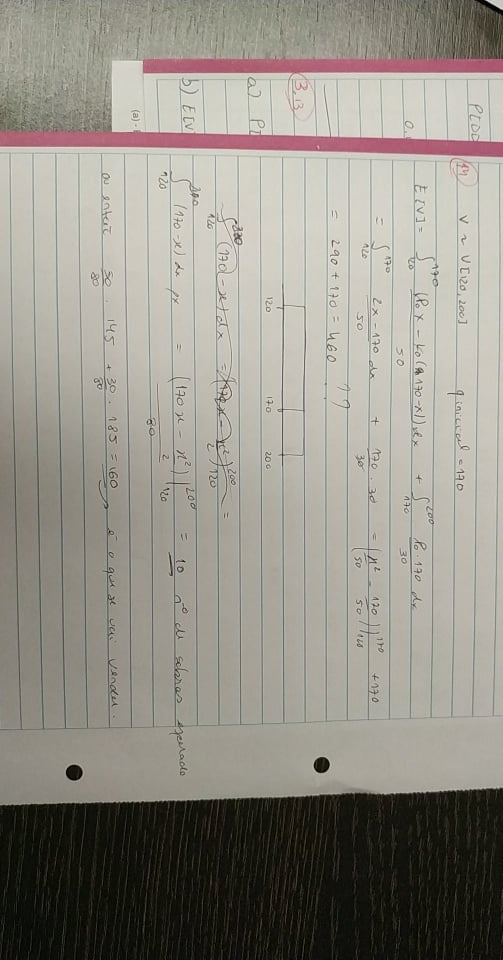 P[DD
0.
3.13
a) P[
b) E[V]
(a) -
14
V ~ U[120, 200]   q inicial = 170
E[V] = ∫₁₂₀¹⁷⁰ (P₀x - k₀(170-x))dx / 50 + ∫₁₇₀²⁰⁰ P₀·170 / 30 dx
= ∫₁₂₀¹⁷⁰ 2x-170 / 50 dx + 170/30 · 30 = (x²/50 - 170/50)|₁₂₀¹⁷⁰ + 170
= 290 + 170 = 460 ??
120 170 200
∫₁₂₀ (170-x)dx = (170x - x²/2)₁₂₀²⁰⁰ =
∫₁₂₀²⁰⁰ (170-x) dx px = (170x - x²/2)|₁₂₀²⁰⁰ / 80 = 10 nº de sobras esperado
ou então 50/80 · 145 + 30/80 · 185 = 160 é o que se vai vender.